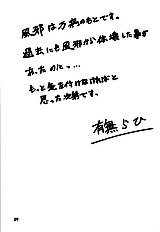 風邪は万病のもとです。
過去にも風邪から体壊した事が
あったのに…
もっと気を付けなければと
思った次第です。
有無らひ
29